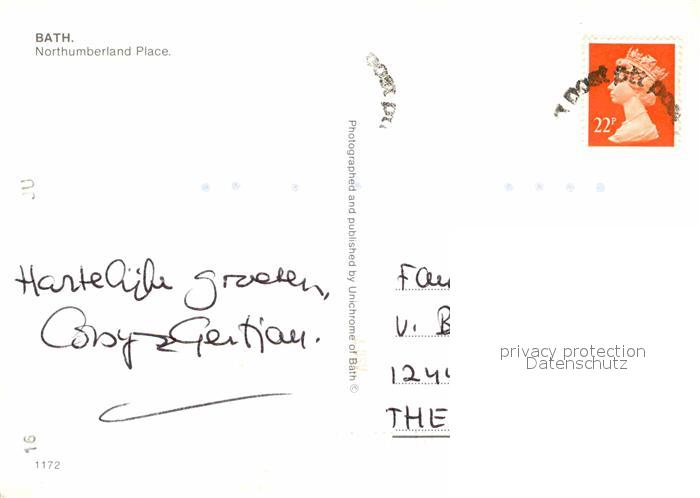 BATH.
Northumberland Place.
post ptt post
post ptt
22P
Photographed and published by Unichrome of Bath ©
JU
Hartelijke groeten,
Coby & Gertjan.
Fam
v. B
124
THE
privacy protection
Datenschutz
16
1172